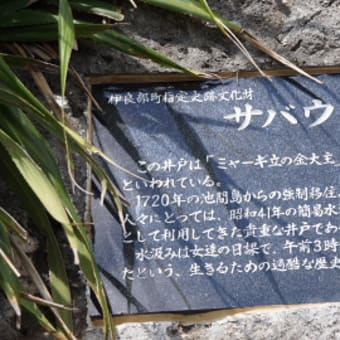 伊良部町指定史跡文化財
サバウ
この井戸は「ミャーキ立の金大主
といわれている。
1720年の池間島からの強制移住
人々にとっては、昭和41年の簡易水
として利用してきた貴重な井戸であ
水汲みは女達の日課で、午前3時
たという、生きるための過酷な歴史